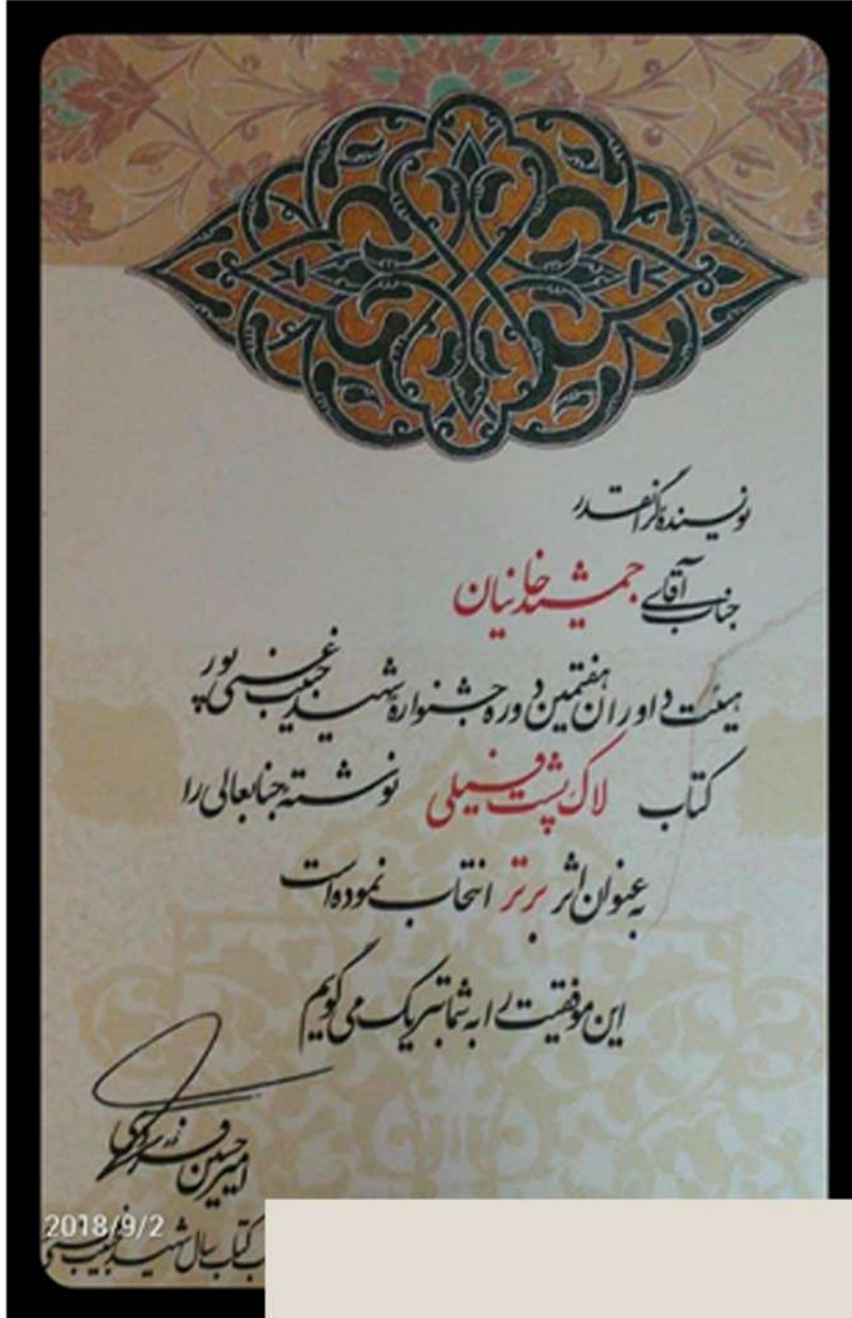 نویسنده گرانقدر
جناب آقای جمشید خانیان
هیئت داوران هفتمین دوره جشنواره شهید حبیب غنی پور
کتاب لاک پشت فیلی نوشته جنابعالی را
به عنوان اثر برتر انتخاب نموده است
این موفقیت را به شما تبریک می گویم
امیرحسین فردی
2018/9/2
کتاب سال شهید حبیب غنی